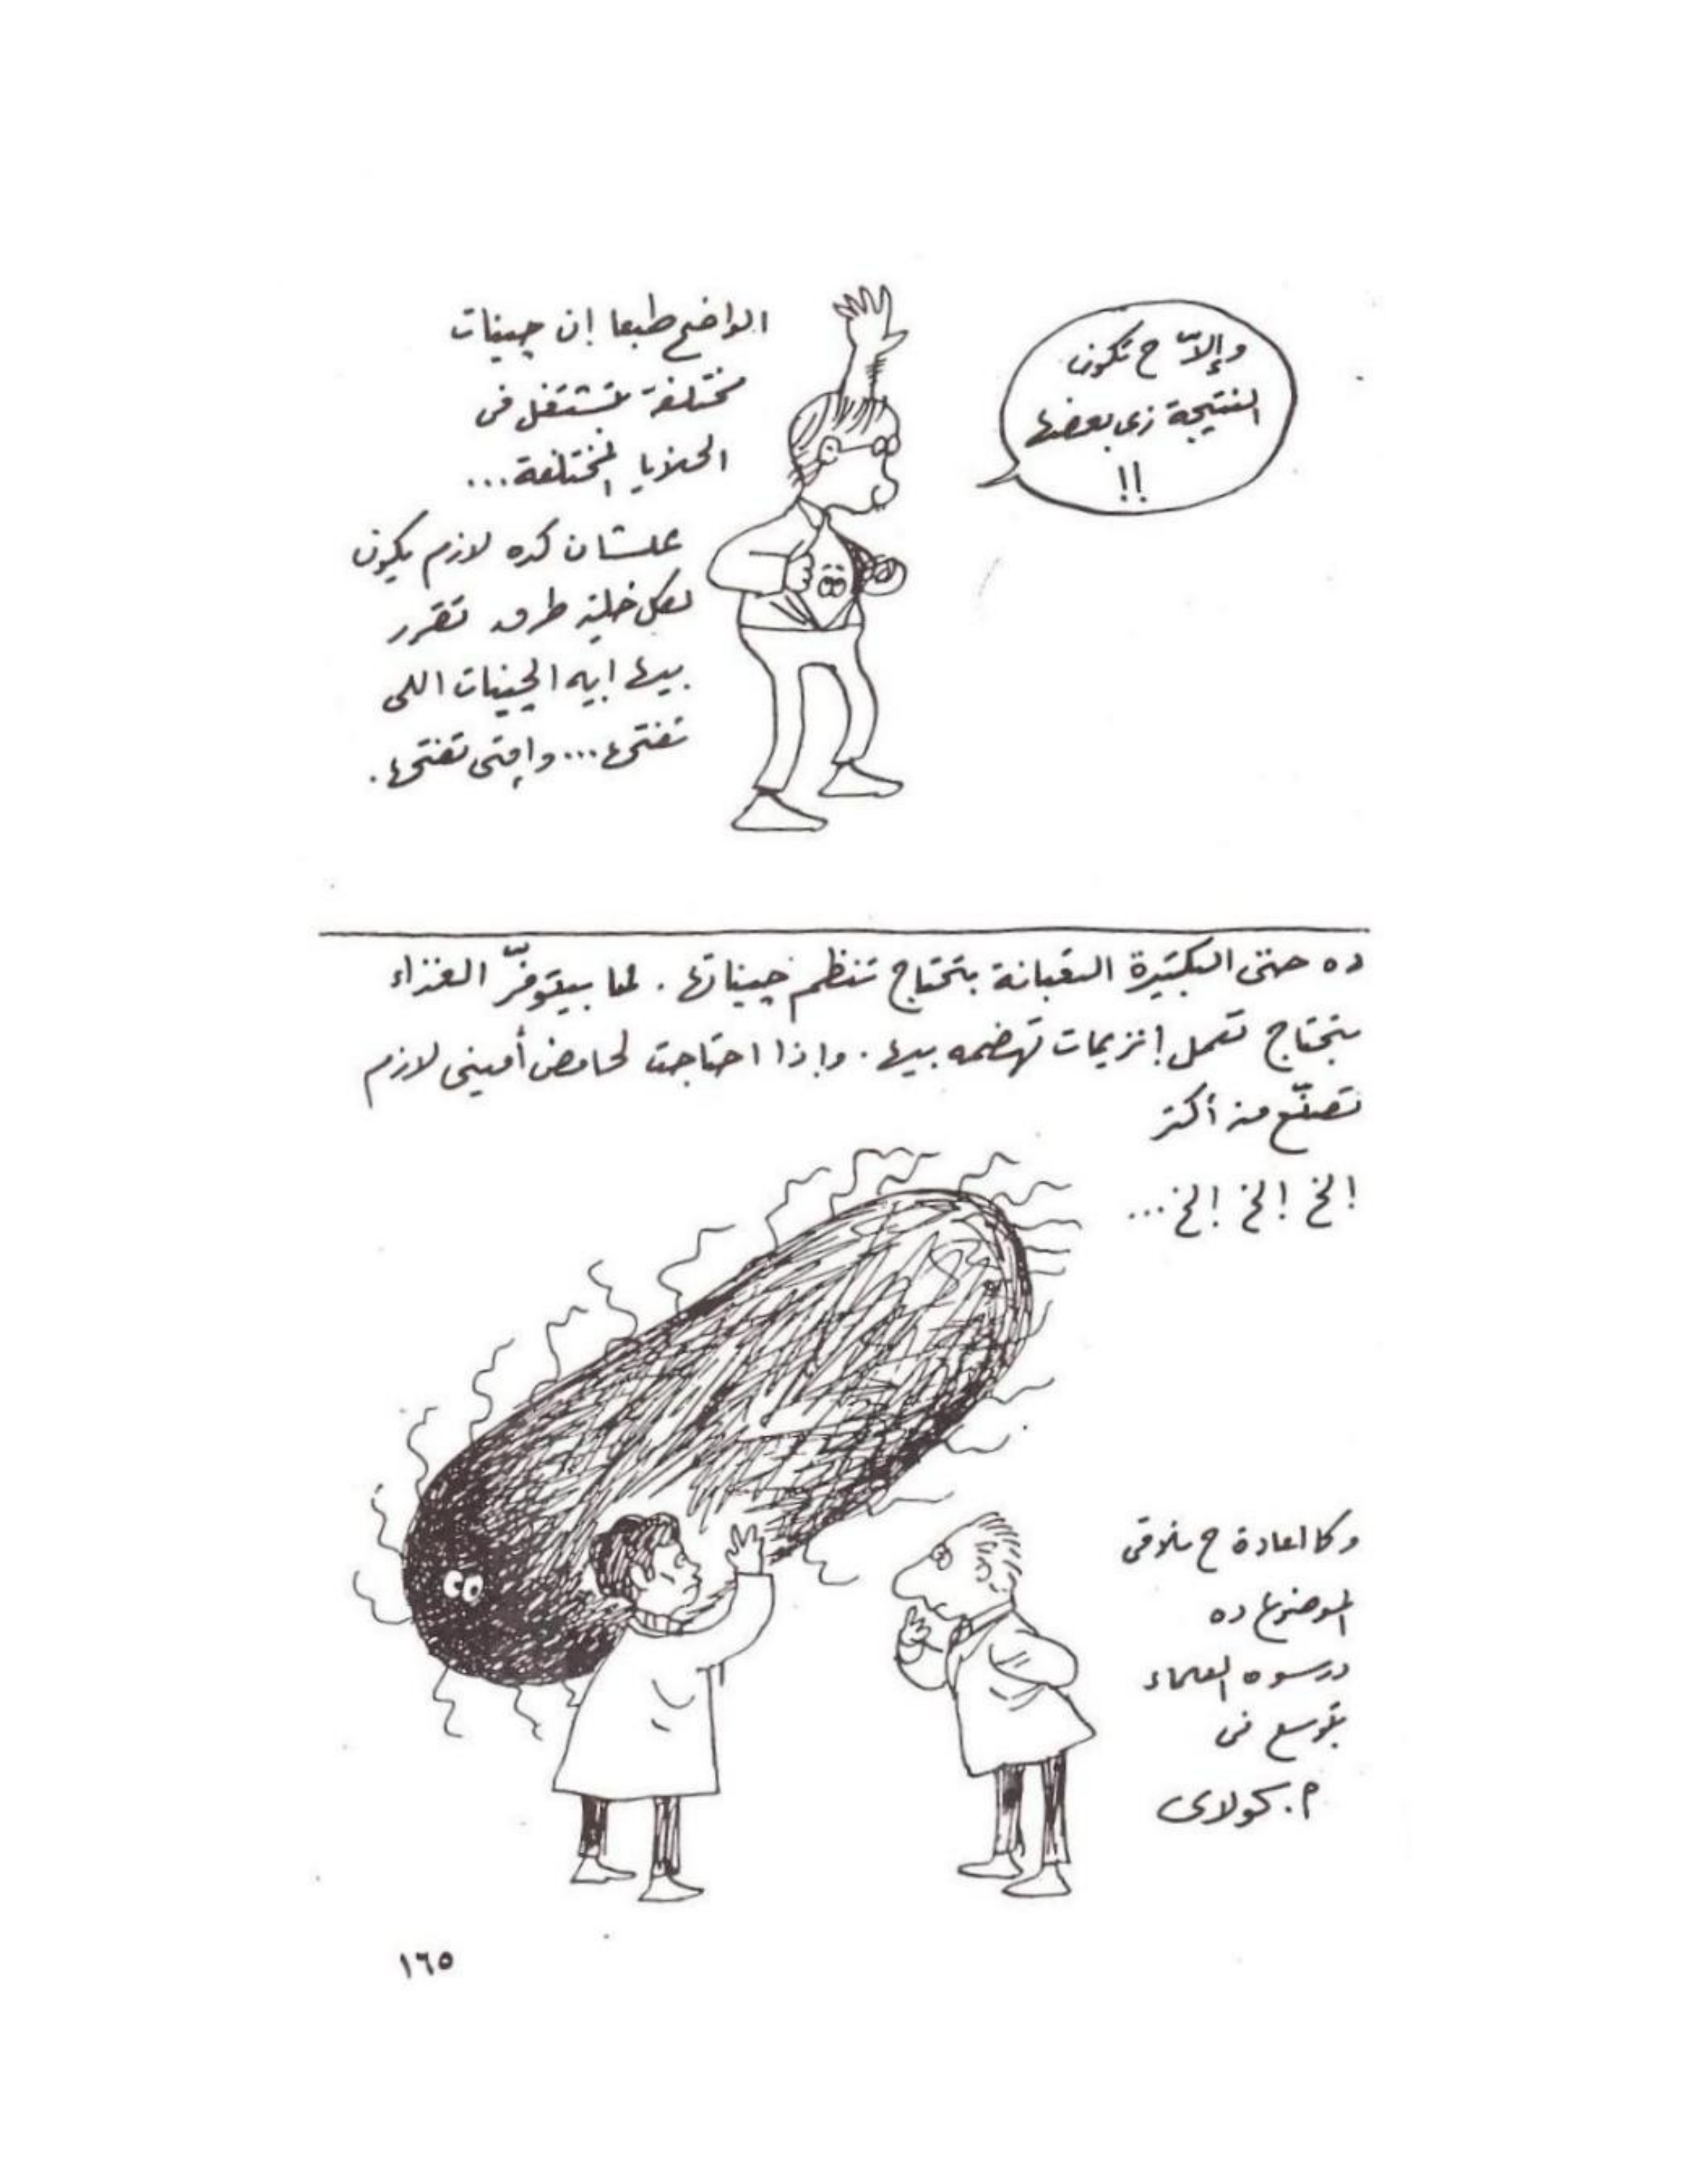 الواضح طبعا إن چينات
مختلفة بتشتغل فى
الخلايا المختلفة...
علشان كده لازم يكون
لكل خلية طرق تقرر
بيها ايه الچينات اللى
تفتحها... وامتى تفتحها.
وإلاّ ح تكون
النتيجة زى بعضها
!!
ده حتى البكتيرة التعبانة بتحتاج تنظم چيناتها. لما بيتوفّر الغذاء
بتحتاج تعمل إنزيمات تهضمه بيها. وإذا احتاجت لحامض أمينى لازم
تصنّع منه أكتر
إلخ إلخ إلخ...
وكالعادة ح نلاقى
الموضوع ده
درسوه العلماء
بتوسع فى
م. كولاى
١٦٥